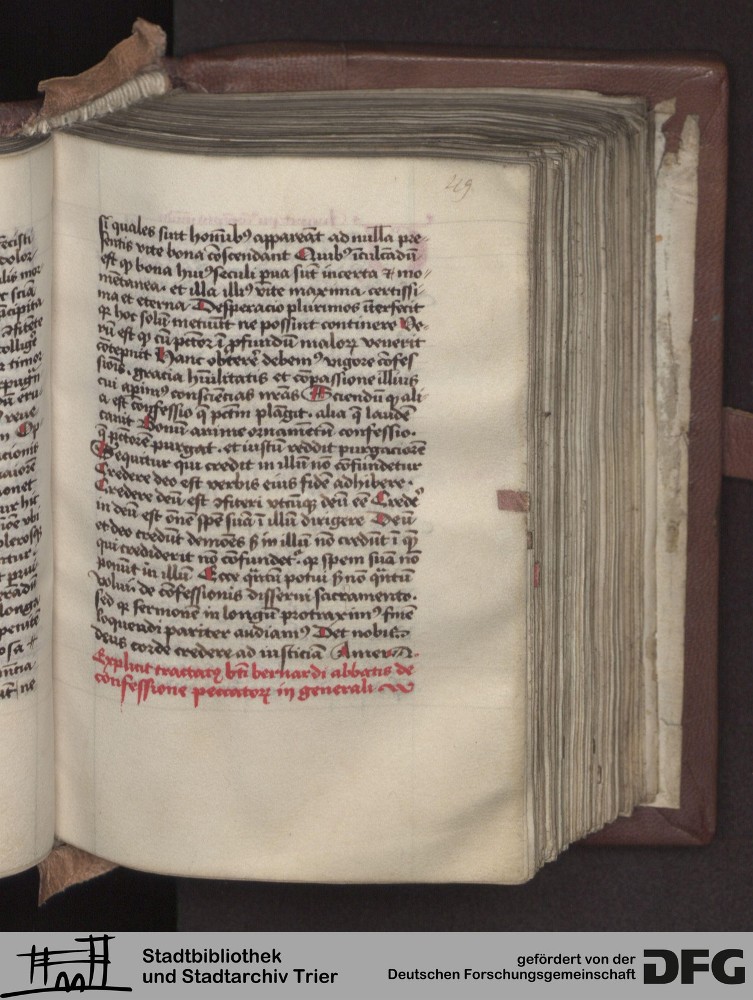 219
si quales sint hoīnibꝰ appareāt ad nulla pre-
sentis vite bona cōscendant Quibꝰ īculcādū
est ꝙ bona huiꝰ seculi p̄ua sūt incerta ⁊ mo-
mētanea· et illa illiꝰ vite maxima certissi-
ma et eterna Desperacio plurimos īterfecit
qꝛ hoc solū metuūt ne possint continere Ve-
rū est ꝙ cū pctōr ī ꝓfundū maloꝝ venerit
cōtēpnit Hanc obterē debemꝰ vigore cōfes
siōis· gracia hūilitatis et cōpassione illius
cui apimꝰ consciencias nr̄as Sciendū ꝙ ali-
a est confessio q̄ pctm̄ plāgit· alia q̄ laudē
cantat Bonū anime ornamētū confessio·
q̄ pctōrē purgat· et iustū reddit purgaciorē
Sequitur qui credit in illū nō cōfundetur
Credere deo est verbis eius fidē adhibere·
Credere deū est ꝯfiteri vtcūꝙ deū eē Credē
in deū est ōnē spē suā ī illū dirigere Deū
et deo credūt demōes sꝫ in illū nō credūt ī quē
qui crediderit nō cōfundetᷣ· qꝛ spem suā nō
ponūt in illū Ecce qͣntū potui sꝫ nō qͣntū
volui· de cōfessionis disserui sacramento·
sed qꝛ sermonē in longū protraximꝰ finē
loquendi pariter audiamꝰ Det nobis
deus corde credere ad iusticiā Amen
Explicit tractatꝰ bt̄i bernardi abbatis de
confessione peccatoꝝ in generali
Stadtbibliothek
und Stadtarchiv Trier
gefördert von der
Deutschen Forschungsgemeinschaft
DFG